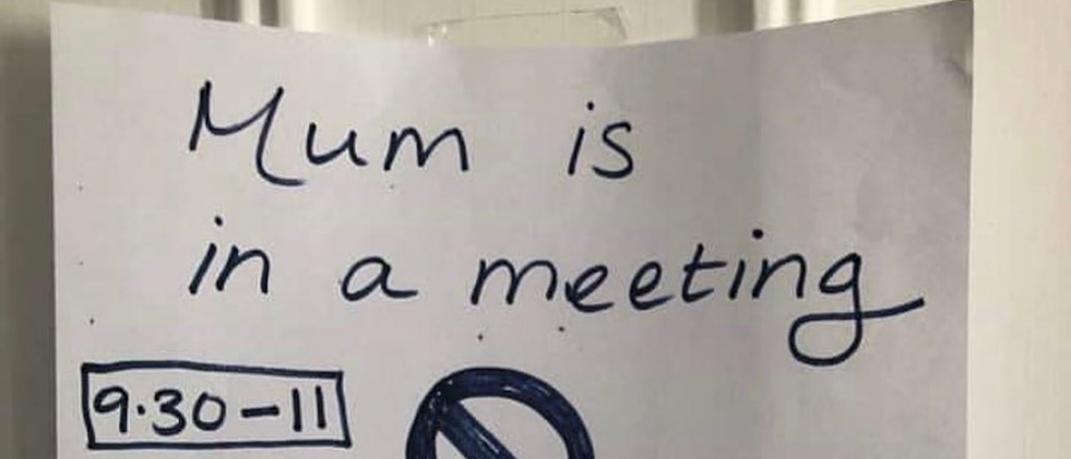 Mum is
in a meeting
9.30-11